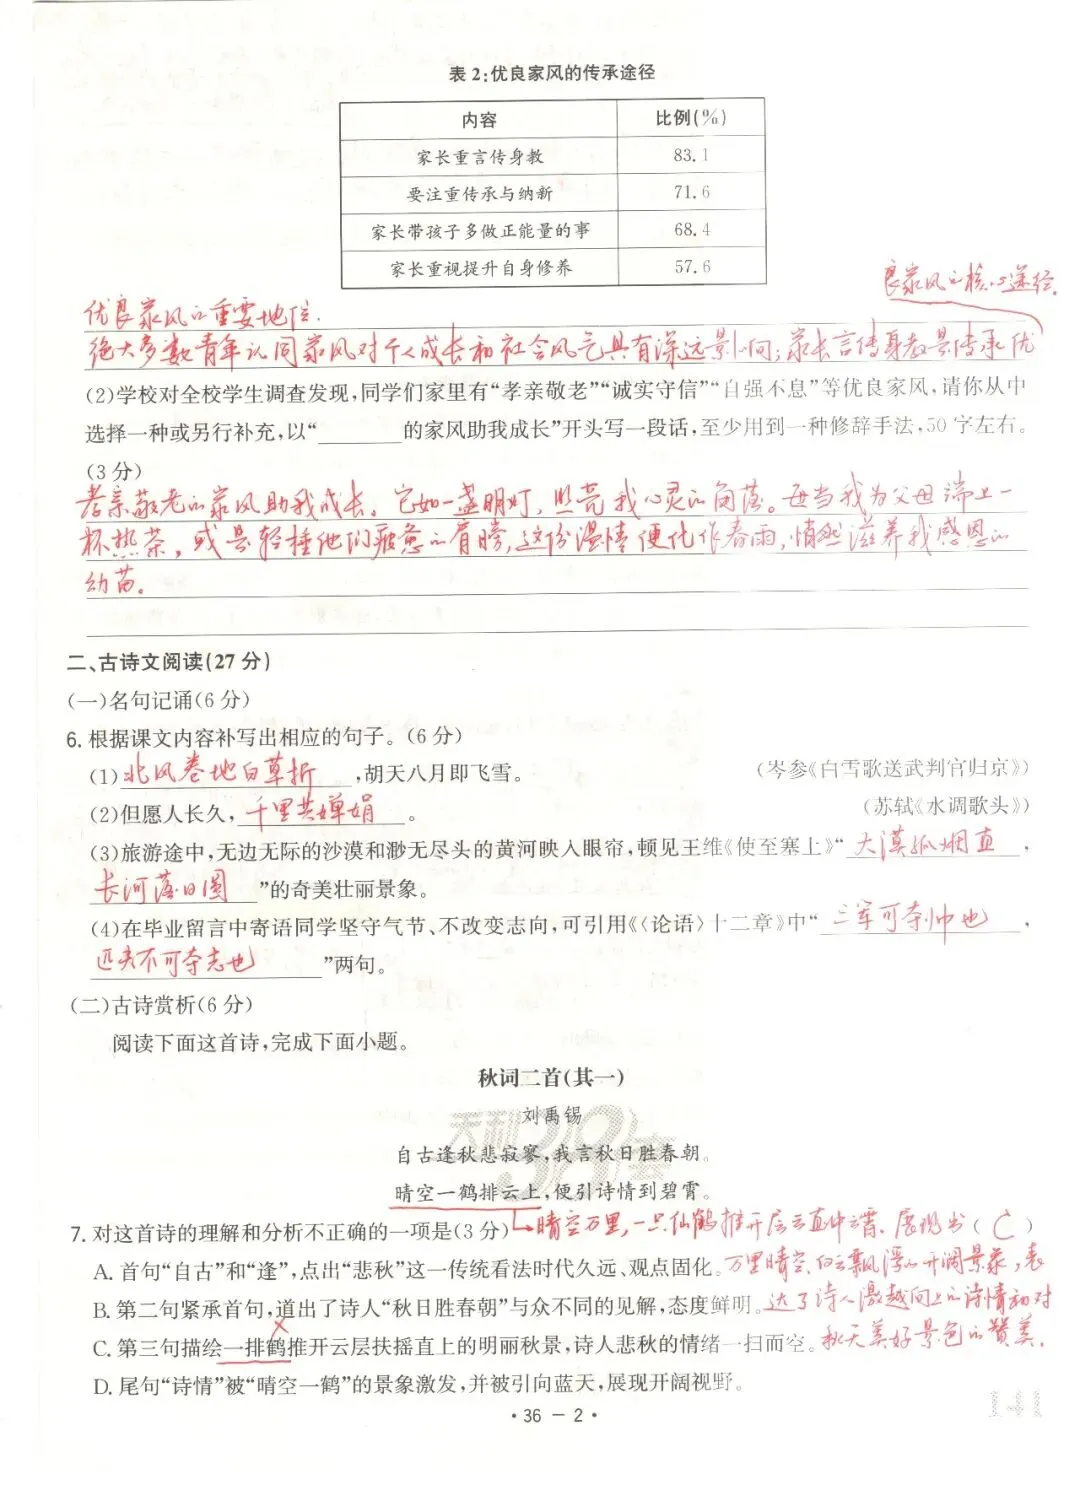 表 2:优良家风的传承途径
内容 比例(%)
家长重言传身教 83.1
要注重传承与纳新 71.6
家长带孩子多做正能量的事 68.4
家长重视提升自身修养 57.6
良家风的核心途径.
优良家风的重要地位.
绝大多数青年认同家风对个人成长和社会风气具有深远影响;家长言传身教是传承优
(2)学校对全校学生调查发现,同学们家里有“孝亲敬老”“诚实守信”“自强不息”等优良家风,请你从中
选择一种或另行补充,以“______的家风助我成长”开头写一段话,至少用到一种修辞手法,50 字左右。
(3 分)
孝亲敬老的家风助我成长。它如一盏明灯,照亮我心灵的角落。每当我为父母端上一
杯热茶,或是轻捶他们疲惫的肩膀,这份温情便化作春雨,悄然滋养我感恩的
幼苗。
二、古诗文阅读(27 分)
(一)名句记诵(6 分)
6. 根据课文内容补写出相应的句子。(6 分)
(1)北风卷地白草折,胡天八月即飞雪。 (岑参《白雪歌送武判官归京》)
(2)但愿人长久,千里共婵娟。 (苏轼《水调歌头》)
(3)旅游途中,无边无际的沙漠和渺无尽头的黄河映入眼帘,顿见王维《使至塞上》“大漠孤烟直,
长河落日圆”的奇美壮丽景象。
(4)在毕业留言中寄语同学坚守气节、不改变志向,可引用《〈论语〉十二章》中“三军可夺帅也,
匹夫不可夺志也”两句。
(二)古诗赏析(6 分)
阅读下面这首诗,完成下面小题。
秋词二首(其一)
刘禹锡
天利38套
自古逢秋悲寂寥,我言秋日胜春朝。
晴空一鹤排云上,便引诗情到碧霄。
7. 对这首诗的理解和分析不正确的一项是(3 分) 晴空万里,一只仙鹤推开层云直冲云霄.展现出 (C)
A. 首句“自古”和“逢”,点出“悲秋”这一传统看法时代久远、观点固化。 万里晴空,白云飘浮的开阔景象,表
B. 第二句紧承首句,道出了诗人“秋日胜春朝”与众不同的见解,态度鲜明。 达了诗人激越向上的诗情和对
C. 第三句描绘一排鹤推开云层扶摇直上的明丽秋景,诗人悲秋的情绪一扫而空。 秋天美好景色的赞美.
D. 尾句“诗情”被“晴空一鹤”的景象激发,并被引向蓝天,展现开阔视野。
• 36 — 2 •
141